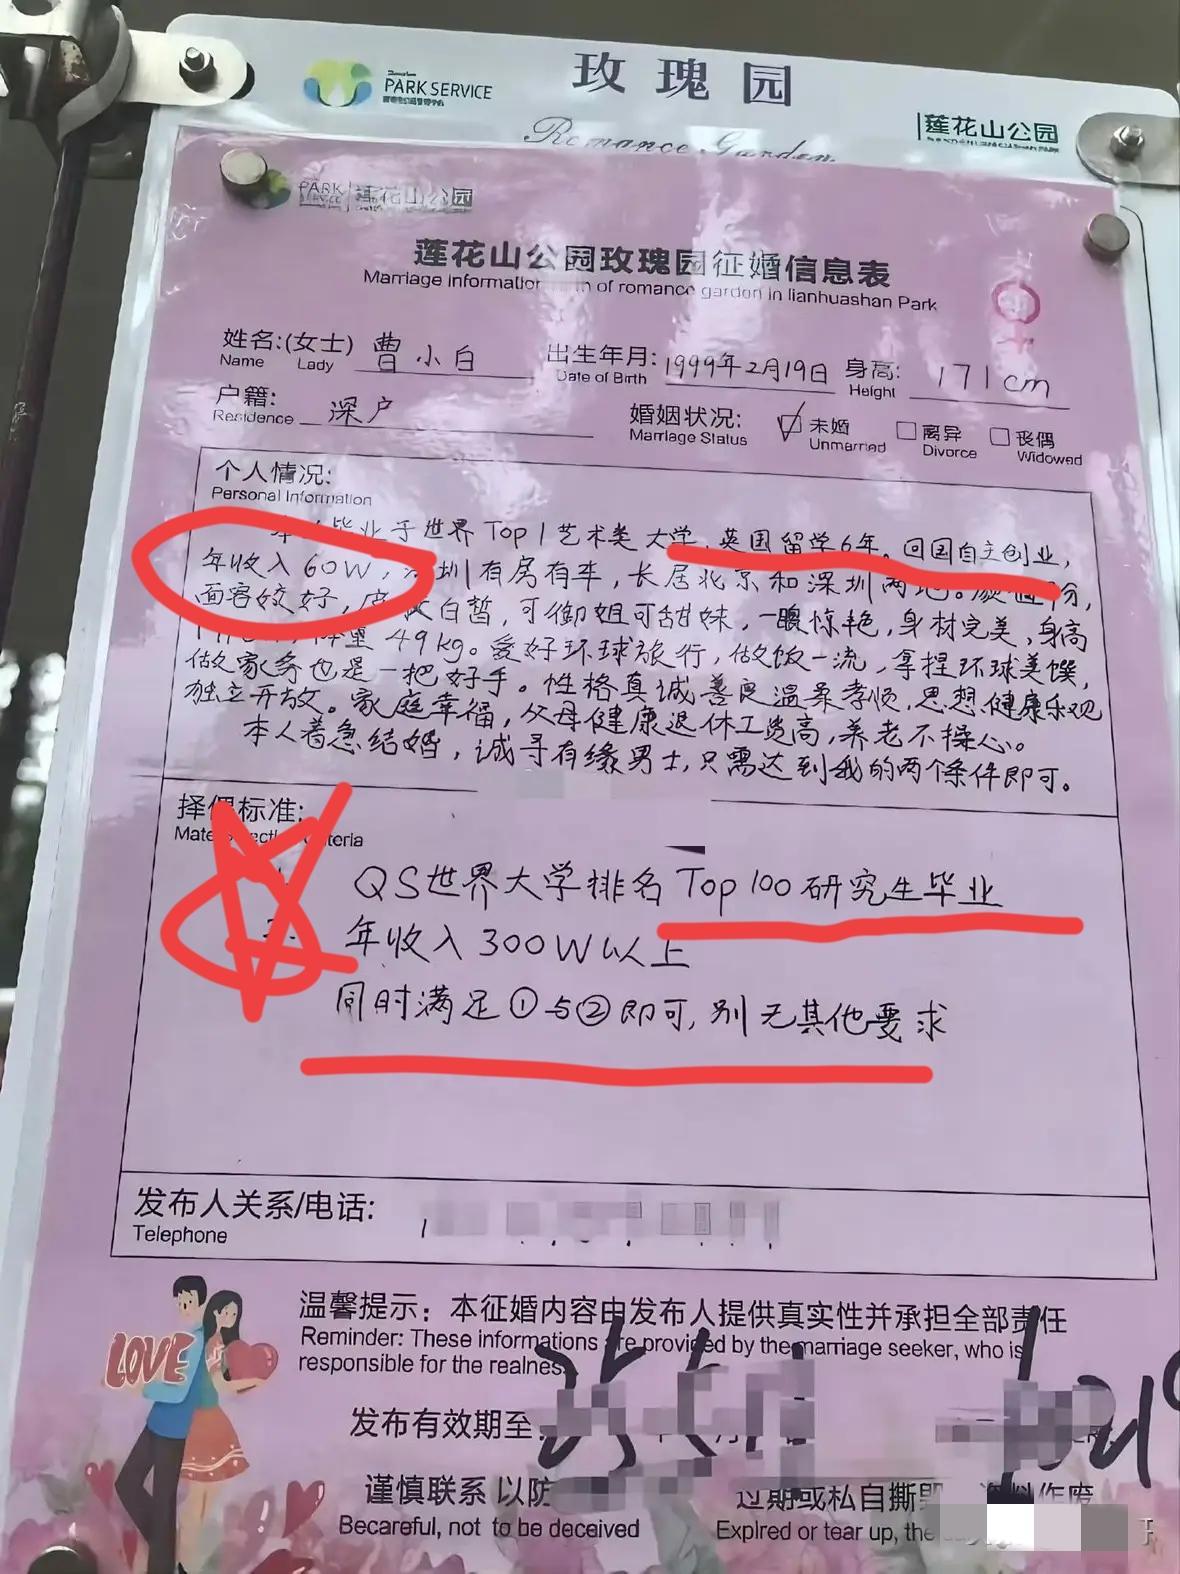 PARK SERVICE
玫瑰园
Romance Garden
莲花山公园
PARK SERVICE 莲花山公园
莲花山公园玫瑰园征婚信息表
Marriage information of romance garden in lianhuashan Park
姓名:(女士) 曹小白 出生年月: 1999年2月19日 身高: 171cm
Name Lady Date of Birth Height
户籍: 深户 婚姻状况: 未婚 离异 丧偶
Residence Marriage Status Unmarried Divorce Widowed
个人情况:
Personal Information
毕业于世界Top1艺术类大学,英国留学6年。回国自主创业,
年收入60W, 圳有房有车,长居北京和深圳两地。颜值 分,
面容姣好, 白皙,可御姐可甜妹,一眼惊艳,身材完美,身高
49kg。爱好环球旅行,做饭一流,拿捏环球美馔,
做家务也是一把好手。性格真诚善良温柔孝顺,思想健康乐观
独立开放。家庭幸福,父母健康退休工资高,养老不操心。
本人着急结婚,诚寻有缘男士,只需达到我的两个条件即可。
择偶标准:
Mate Criteria
QS世界大学排名Top100研究生毕业
年收入300W以上
同时满足①与②即可,别无其他要求
发布人关系/电话:
Telephone
温馨提示:本征婚内容由发布人提供真实性并承担全部责任
Reminder: These informations are provided by the marriage seeker, who is
responsible for the realness
LOVE
发布有效期至:
谨慎联系 以防 过期或私自撕毁 资料作废
Becareful, not to be deceived Expired or tear up, the